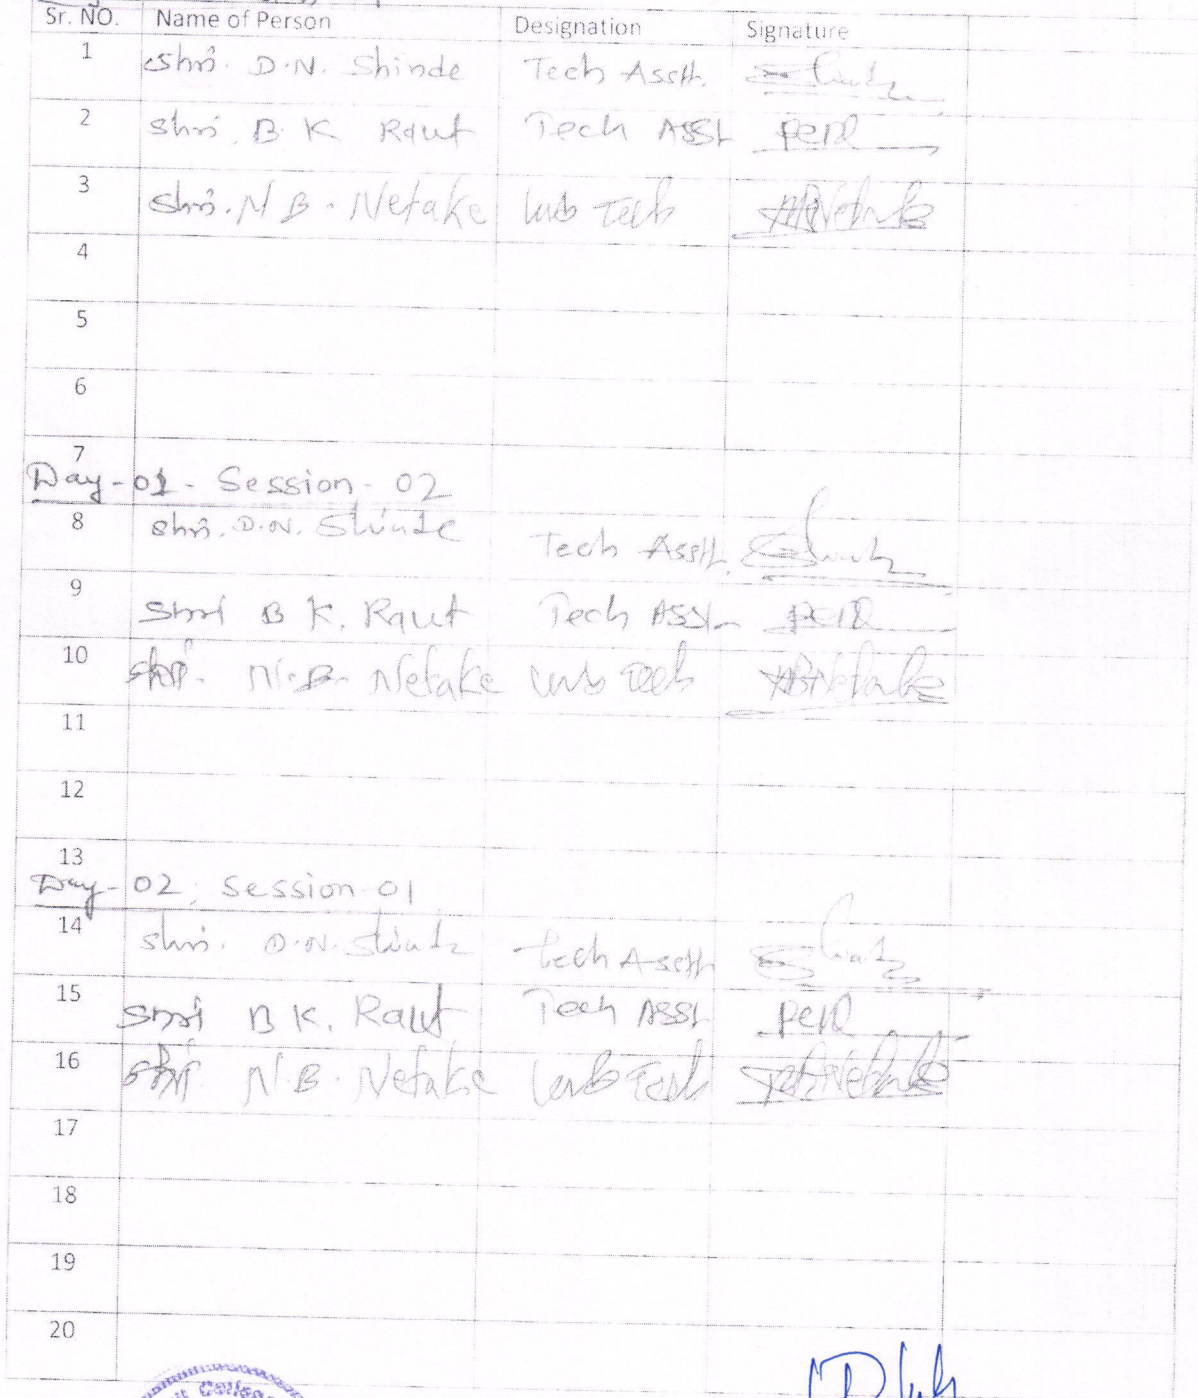 Sr. NO. Name of Person Designation Signature
1 Shri. D.N. Shinde Tech Asstt.
2 Shri. B. K Raut Tech ASSt
3 Shri. N B. Netake Lab Tech
4
5
6
7
Day-01 - Session - 02
8 Shri. D.N. Shinde Tech Asstt.
9 Shri B K. Raut Tech ASSt
10 Shri. N.B. Netake Lab Tech
11
12
13
Day-02, Session-01
14 Shri. D.N. Shinde Tech Asstt
15 Shri B K. Raut Tech ASSt
16 Shri N.B. Netake Lab Tech
17
18
19
20